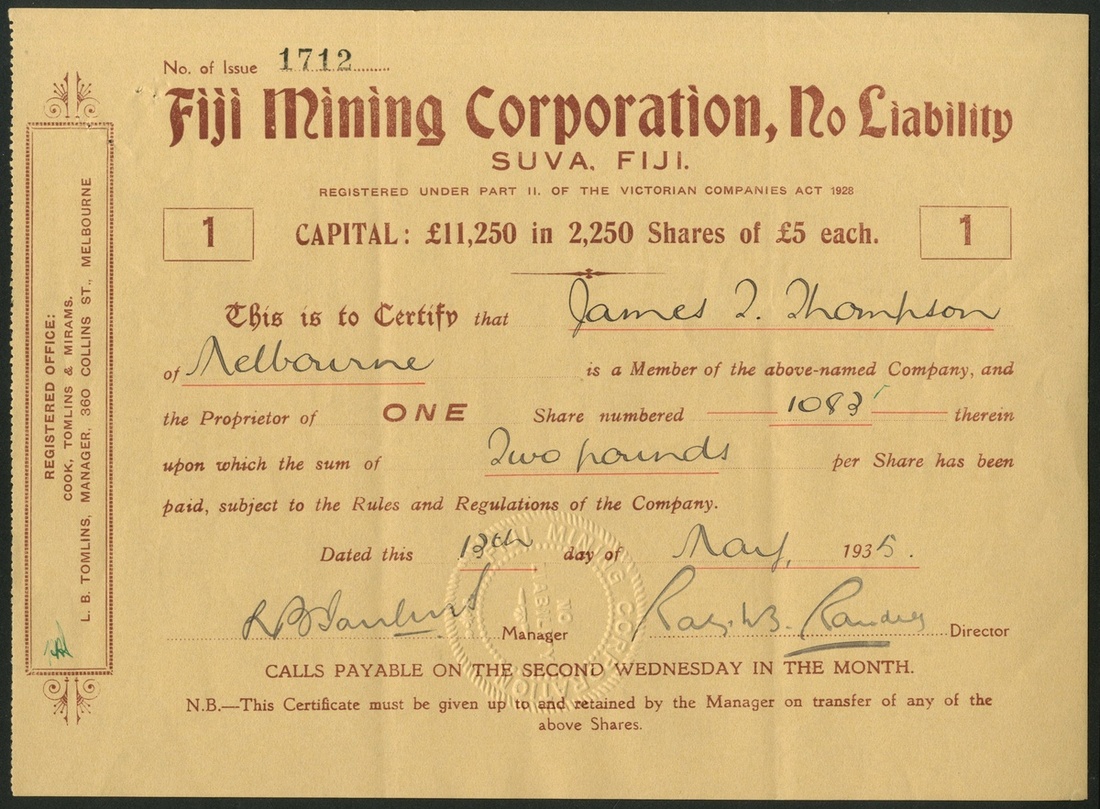 No. of Issue 1712
Fiji Mining Corporation, No Liability
SUVA, FIJI.
REGISTERED UNDER PART II. OF THE VICTORIAN COMPANIES ACT 1928
1 CAPITAL: £11,250 in 2,250 Shares of £5 each. 1
This is to Certify that James T. Thompson
of Melbourne is a Member of the above-named Company, and
the Proprietor of ONE Share numbered 1083 therein
upon which the sum of Two pounds per Share has been
paid, subject to the Rules and Regulations of the Company.
Dated this 13th day of May, 1935.
Manager Director
CALLS PAYABLE ON THE SECOND WEDNESDAY IN THE MONTH.
N.B.—This Certificate must be given up to and retained by the Manager on transfer of any of the
above Shares.
REGISTERED OFFICE:
COOK, TOMLINS & MIRAMS.
L. B. TOMLINS, MANAGER, 360 COLLINS ST., MELBOURNE
FIJI MINING CORPORATION
NO